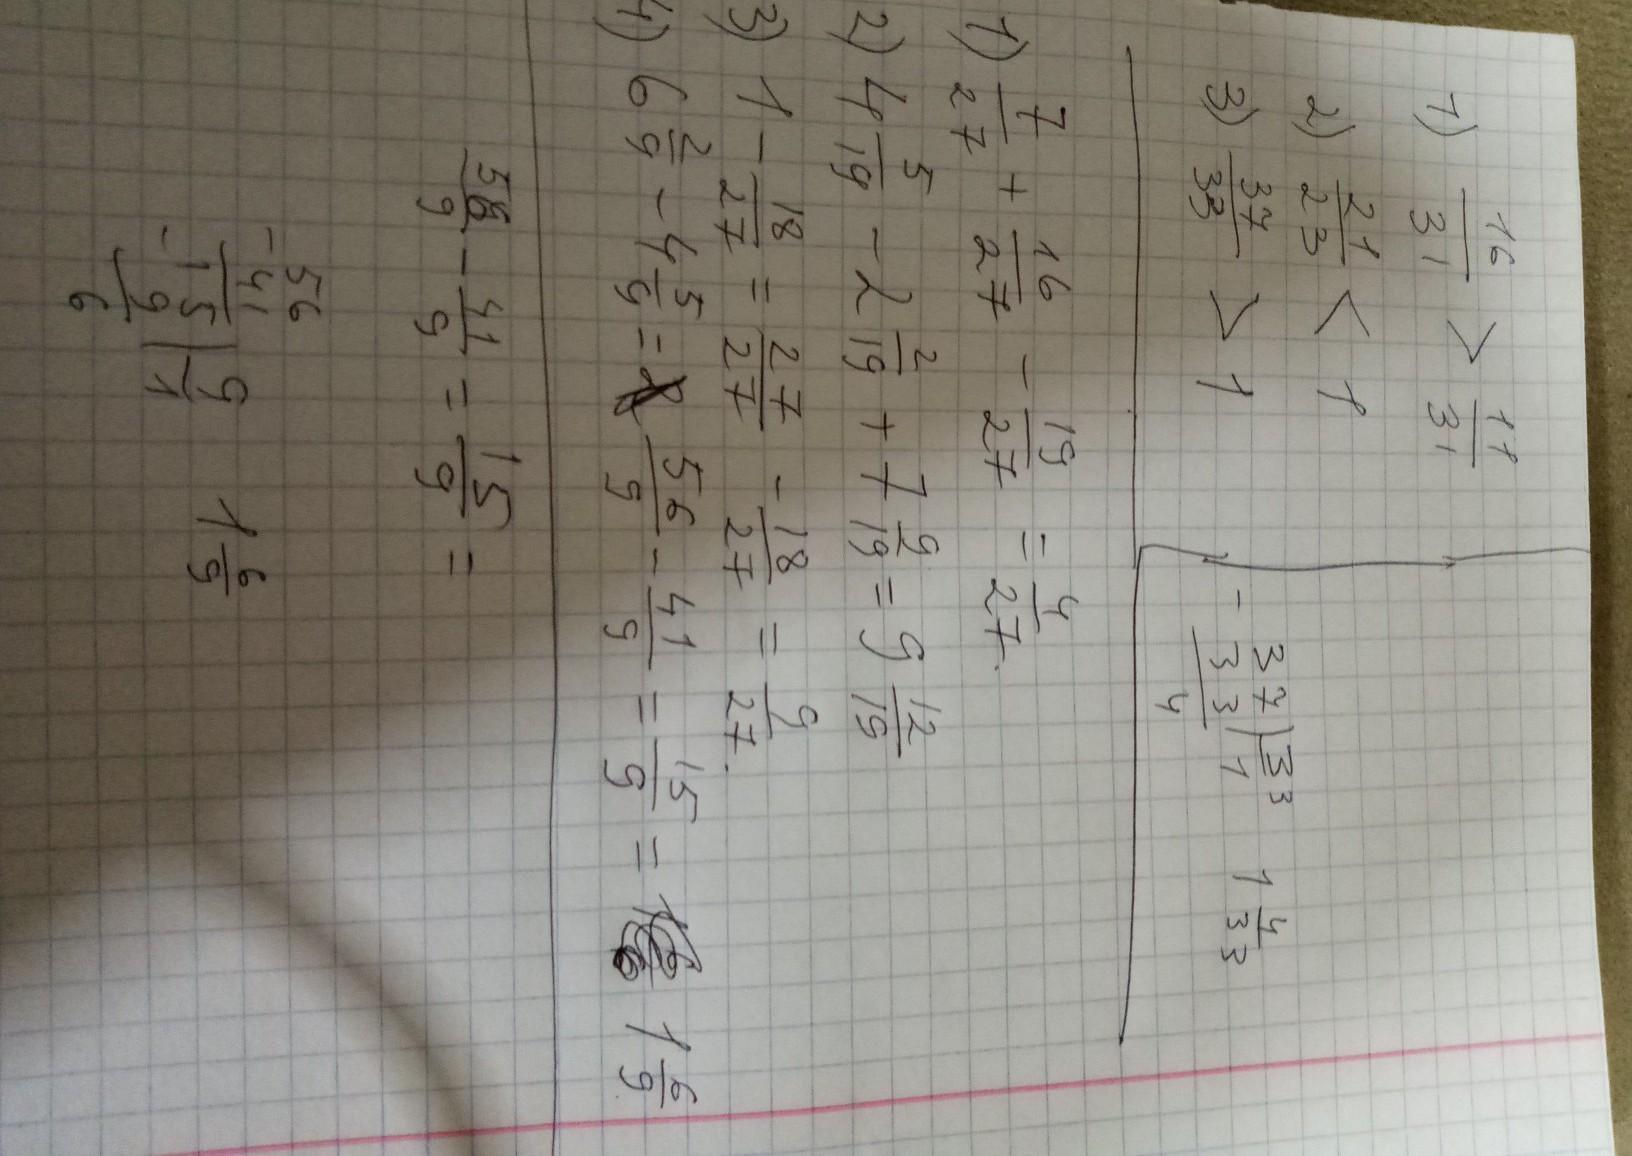 1) 16/31 > 11/31
2) 21/23 < 1
3) 37/33 > 1
37 | 33
- 33 | 1
4
1 4/33
1) 7/27 + 16/27 - 19/27 = 4/27.
2) 4 5/19 - 2 2/19 + 7 9/19 = 9 12/19
3) 1 - 18/27 = 27/27 - 18/27 = 9/27.
4) 6 2/9 - 4 5/9 = 56/9 - 41/9 = 15/9 = 1 6/9
56/9 - 41/9 = 15/9 =
56
- 41
15 | 9
- 9 | 1
6
1 6/9